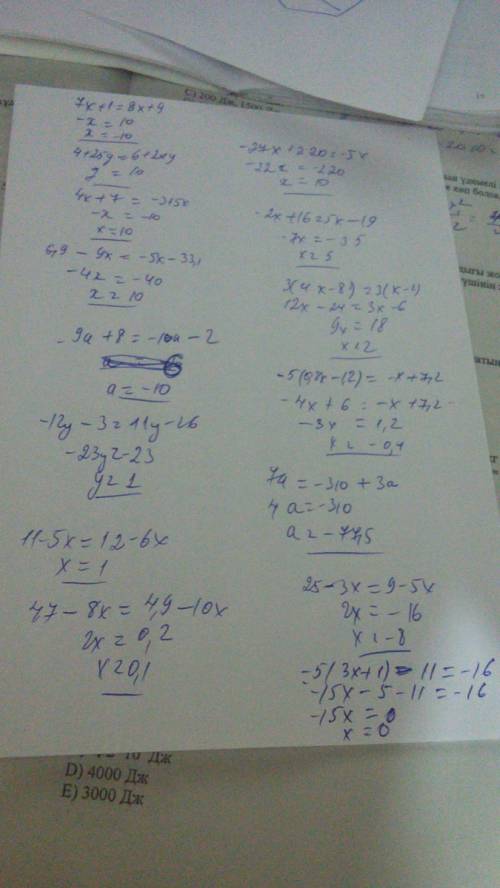 C) 200 Дж, 1500
7x+1=8x+9
-x = 10
x = -10
4+25y=6+2
y = 10
4x+7 = -3+5x
-x = -10
x=10
- 9x = -5x-33,1
-4x = -40
x = 10
-9a+8=-10a-2
a = -10
-12y-3=11y-26
-23y=-23
y=1
11-5x=12-6x
x=1
4,7-8x=4,9-10x
2x=0,2
x=0,1
-27x+220=-5x
-22x=-220
x=10
-2x+16=5x-19
-7x=-35
x=5
3(4x-8)=3(x-2)
12x-24=3x-6
9x=18
x=2
-4x+6=-x+7,2
-3x=1,2
x=-0,4
7a=-310+3a
4a=-310
a=-77,5
25-3x=9-5x
2x=-16
x=-8
-5(3x+1)-11=-16
-15x-5-11=-16
-15x=0
x=0
D) 4000 Дж
E) 3000 Дж